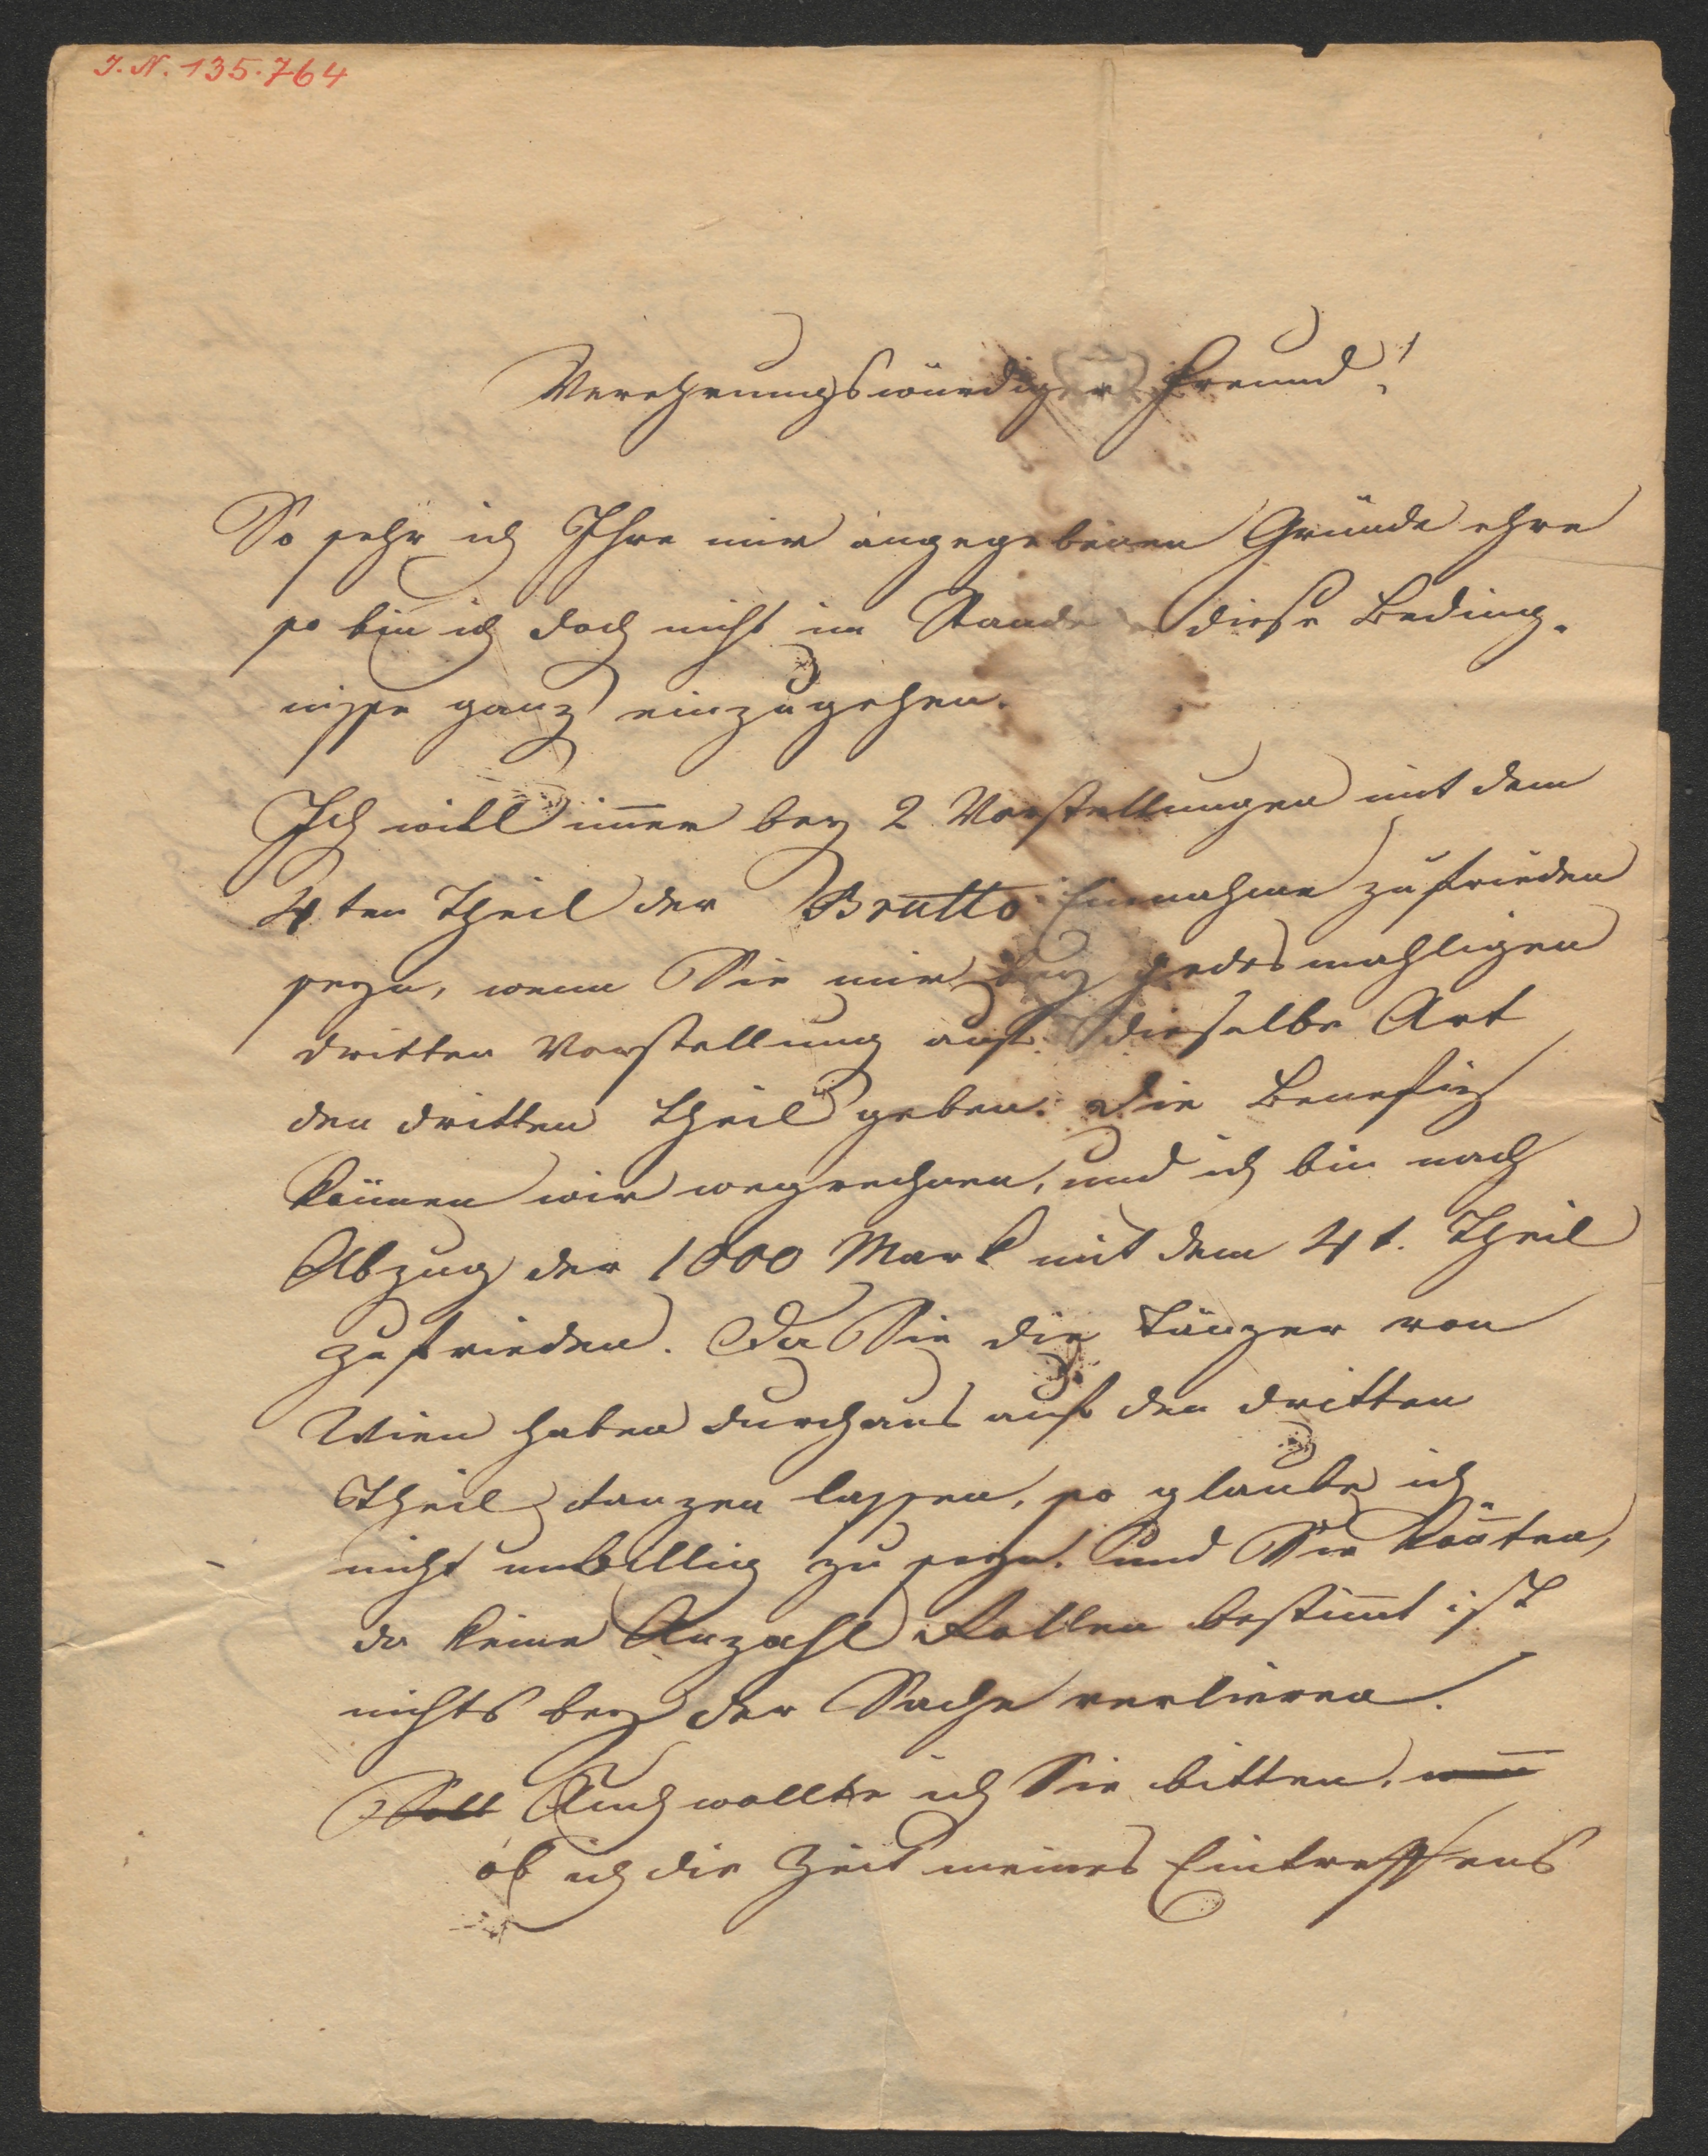 J. N. 135.764
Verehrungswürdiger Freund!
So sehr ich Ihre mir angegebenen Gründe ehre
so bin ich doch nicht im Stande diese Beding-
nisse ganz einzugehen.
Ich will im̄er bey 2 Vorstellungen mit dem
4ten Theil der Brutto Einnahme zufrieden
seyn, wenn Sie mir bey jedesmahligen
dritten Vorstellung auf dieselbe Art
den dritten Theil geben. Die Benefiz
können wir wegrechnen, und ich bin nach
Abzug der 1000 Mark mit dem 4t. Theil
zufrieden. Da Sie die Tänzer von
Wien haben durchaus auf den dritten
Theil tanzen lassen, so glaube ich
nicht unbillig zu seyn. Und Sie kön̄ten,
da keine Anzahl Rollen bestim̄t ist
nichts bey der Sache verlieren.
Soll Auch wollte ich Sie bitten,
ob ich die Zeit meines Eintreffens